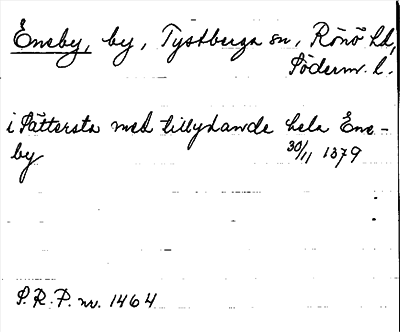 Eneby, by, Tystberga sn, Rönö hd,
Söderm. l.
i Sättersta med tillydande hela Ene-
by
30/11 1379
S.R.P. nr. 1464